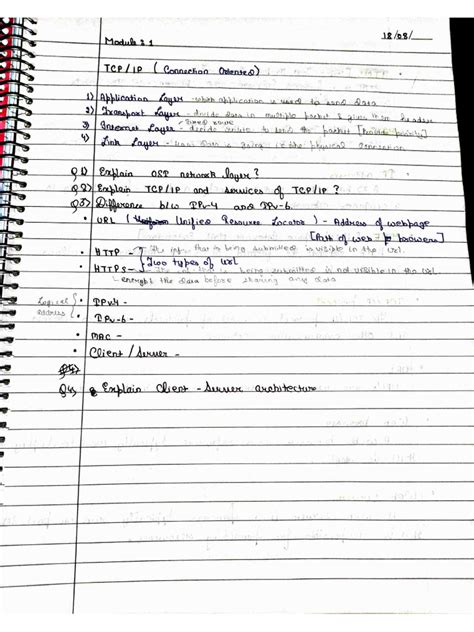 18/08/
Module 3.1
TCP/IP (Connection Oriented)
1) Application Layer - which application is used to send data
2) Transport Layer - divide data in multiple packet & give them header
3) Internet Layer - decide route to send the packet
4) Link Layer - data is going in the physical connection
Q1) Explain OSI network layer?
Q2) Explain TCP/IP and services of TCP/IP?
Q3) Difference b/w IPv-4 and IPv-6.
• URL ( Unified Resource Locator) - Address of webpage
[ of web browsers]
• HTTP - The info that is being submitted is visible in the url.
Two types of url
• HTTPS - being submitted is not visible in the url.
- encrypt the data before sharing any data
Logical Address { • IPv4 -
• IPv-6 -
• MAC -
• Client/Server -
Q4) Explain Client - Server architecture